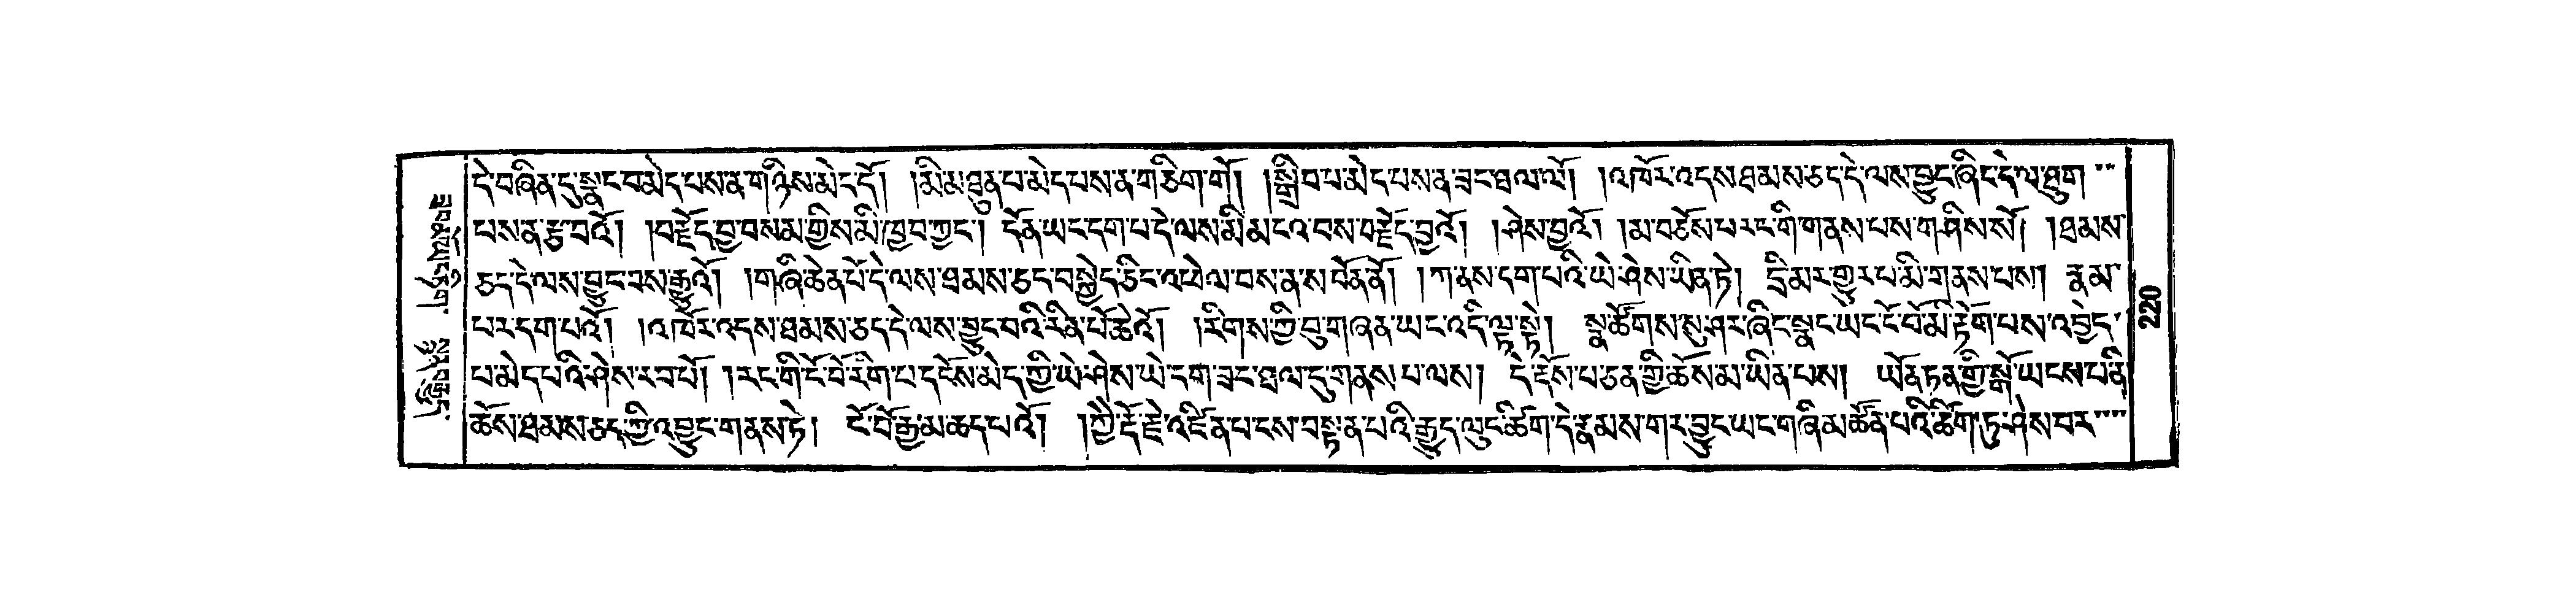 དེ་བཞིན་དུ་སྣང་བམེད་པས་ན་གཉིས་མེད་དོ། །མི་མཐུན་པ་མེད་པས་ན་གཅིག་གོ། །སྒྲིབ་པ་མེད་པས་ན་ཟང་ཐལ་ལོ། །འཁོར་འདས་ཐམས་ཅད་དེ་ལས་བྱུང་ཞིང་དེ་ལ་ཐུག་
པས་ན་རྩ་བའོ། །བརྗོད་བྱ་བསམ་གྱིས་མི་ཁྱབ་ཀྱང་། དོན་ཡང་དག་པ་དེ་ལས་མི་མངའ་བས་བརྗོད་བྱའོ། །ཤེས་བྱའོ། །མ་བཅོས་པར་རང་གི་གནས་པས་གཤིས་སོ། །ཐམས་
ཅད་དེ་ལས་བྱུང་བས་རྒྱུའོ། །གཞི་ཆེན་པོ་དེ་ལས་ཐམས་ཅད་བསྐྱེད་ཅིང་འཕེལ་བས་ན་ས་བོན་ནོ། །ཀ་ནས་དག་པའི་ཡེ་ཤེས་ཡིན་ཏེ། དྲི་མར་གྱུར་པ་མི་གནས་པས། རྣམ་
པར་དག་པའོ། །འཁོར་འདས་ཐམས་ཅད་དེ་ལས་བྱུང་བའི་རིན་པོ་ཆེའོ། །རིགས་ཀྱི་བུ་གཞན་ཡང་འདི་ལྟ་སྟེ། སྣ་ཚོགས་སུ་ཤར་ཞིང་སྣང་ཡང་ངོ་བོ་མི་རྟོག་པས་འབྱེད་
པ་མེད་པའི་ཤེས་རབ་པོ། །རང་གི་ངོ་བོ་རིག་པ་དངོས་མེད་ཀྱི་ཡེ་ཤེས་ཡེ་དག་ཟང་ཐལ་དུ་གནས་པ་ལས། དེ་ངོས་པ་ཅན་གྱི་ཆོས་མ་ཡིན་པས། ཡོན་ཏན་གྱི་སྒོ་ཡངས་པ་ནི
ཆོས་ཐམས་ཅད་ཀྱི་འབྱུང་གནས་ཏེ། ངོ་བོ་རྒྱ་མ་ཆད་པའོ། །ཀྱེ་རྡོ་རྗེ་འཛིན་པ་ངས་བསྟན་པའི་རྒྱུད་ལུང་ཚིག་དེ་རྣམས་གར་བྱུང་ཡང་གཞི་མཚོན་པའི་ཚིག་ཏུ་ཤེས་བར་